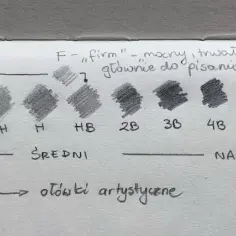 F - „firm" - mocny, trwał
głównie do pisania
H H HB 2B 3B 4B
ŚREDNI NA
→ ołówki artystyczne